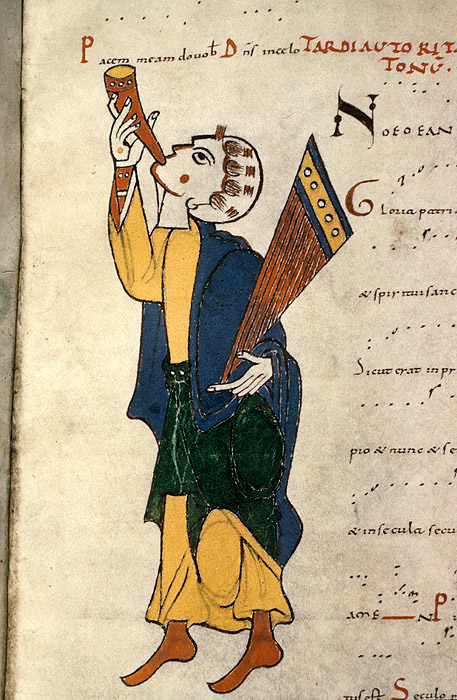 Pacem meam do vob Dns in celo TARDI AUTORITA
TONŪ.
NOEOEAN
Gloria patri
& spiritui sanc
Sicut erat in pr
pio & nunc & se
& in secula secu
AME N P
S eculo